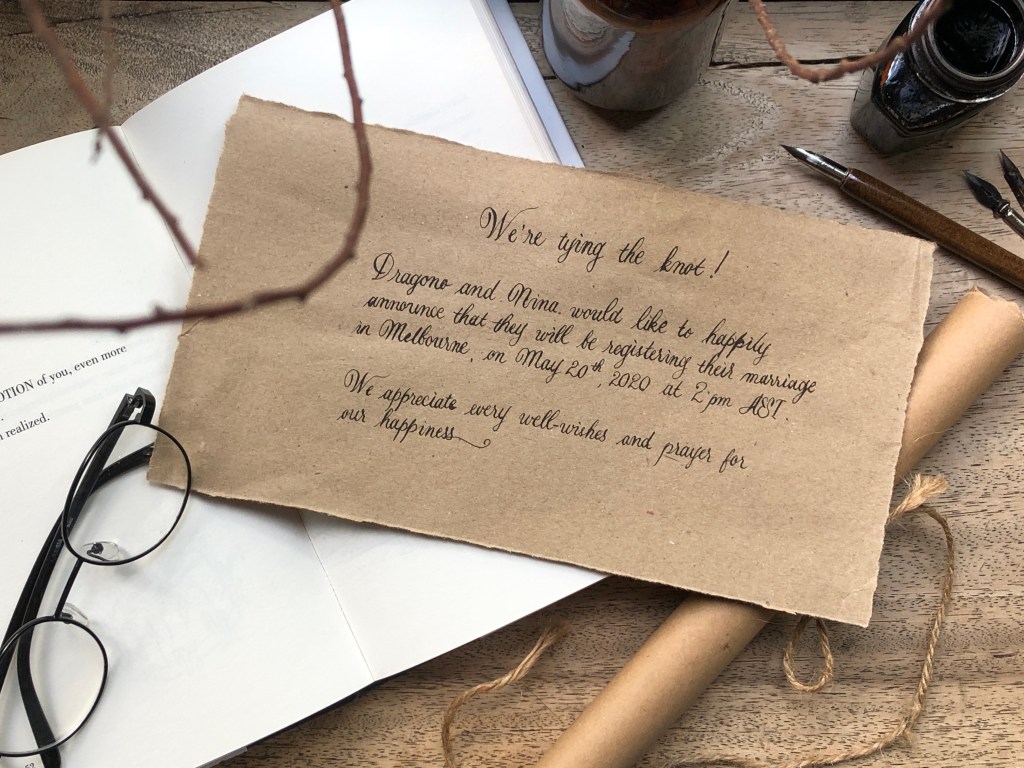 We're tying the knot!
Dragono and Nina would like to happily
announce that they will be registering their marriage
in Melbourne, on May 20th, 2020 at 2 pm AST.
We appreciate every well-wishes and prayer for
our happiness
OTION of you, even more
realized.
52